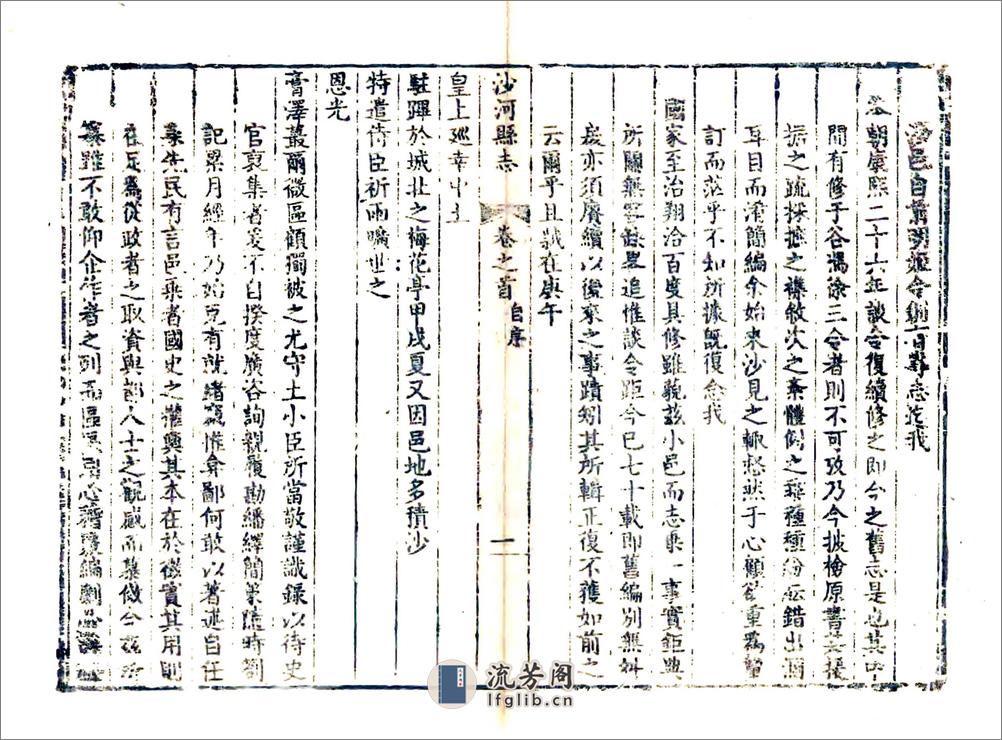 沙邑自前明姬令創百年志迄我
本朝康熙二十六年談令復續修之即今之舊志是也其中
間有修于谷馮徐三令者則不可攷乃今披檢原書其援
據之疏採摭之襍敘次之紊體例之乖種種紛紜錯出洞
耳目而淆簡編余始來沙見之輒愁然于心顧欲重為釐
訂而茫乎不知所據旣復念我
國家至治翔洽百度具修雖藐兹小邑而志乗一事實鉅典
所關無容缺畧追惟談令距今已七十載即舊編別無舛
疵亦須賡續以後來之事蹟矧其所輯正復不獲如前之
云爾乎且歲在庚午
沙河縣志 卷之首 自序 一
皇上廵幸中土
駐蹕於城北之梅花亭甲戌夏又因邑地多積沙
特遣侍臣祈雨曠世之
恩光
膏澤蕞爾微區顧獨被之尤守土小臣所當敬謹識錄以待史
官裒集者爰不自揆度廣咨詢親履勘繙繹簡策隨時劄
記累月經年乃始克有就緒竊惟弇鄙何敢以著述自任
先民有言邑乗者國史之權輿其本在於徵實其用則
在足為從政者之取資與都人士之觀感而集倣今茲所
纂雖不敢仰企作者之列而區區苦心
流芳阁
lfglib.cn